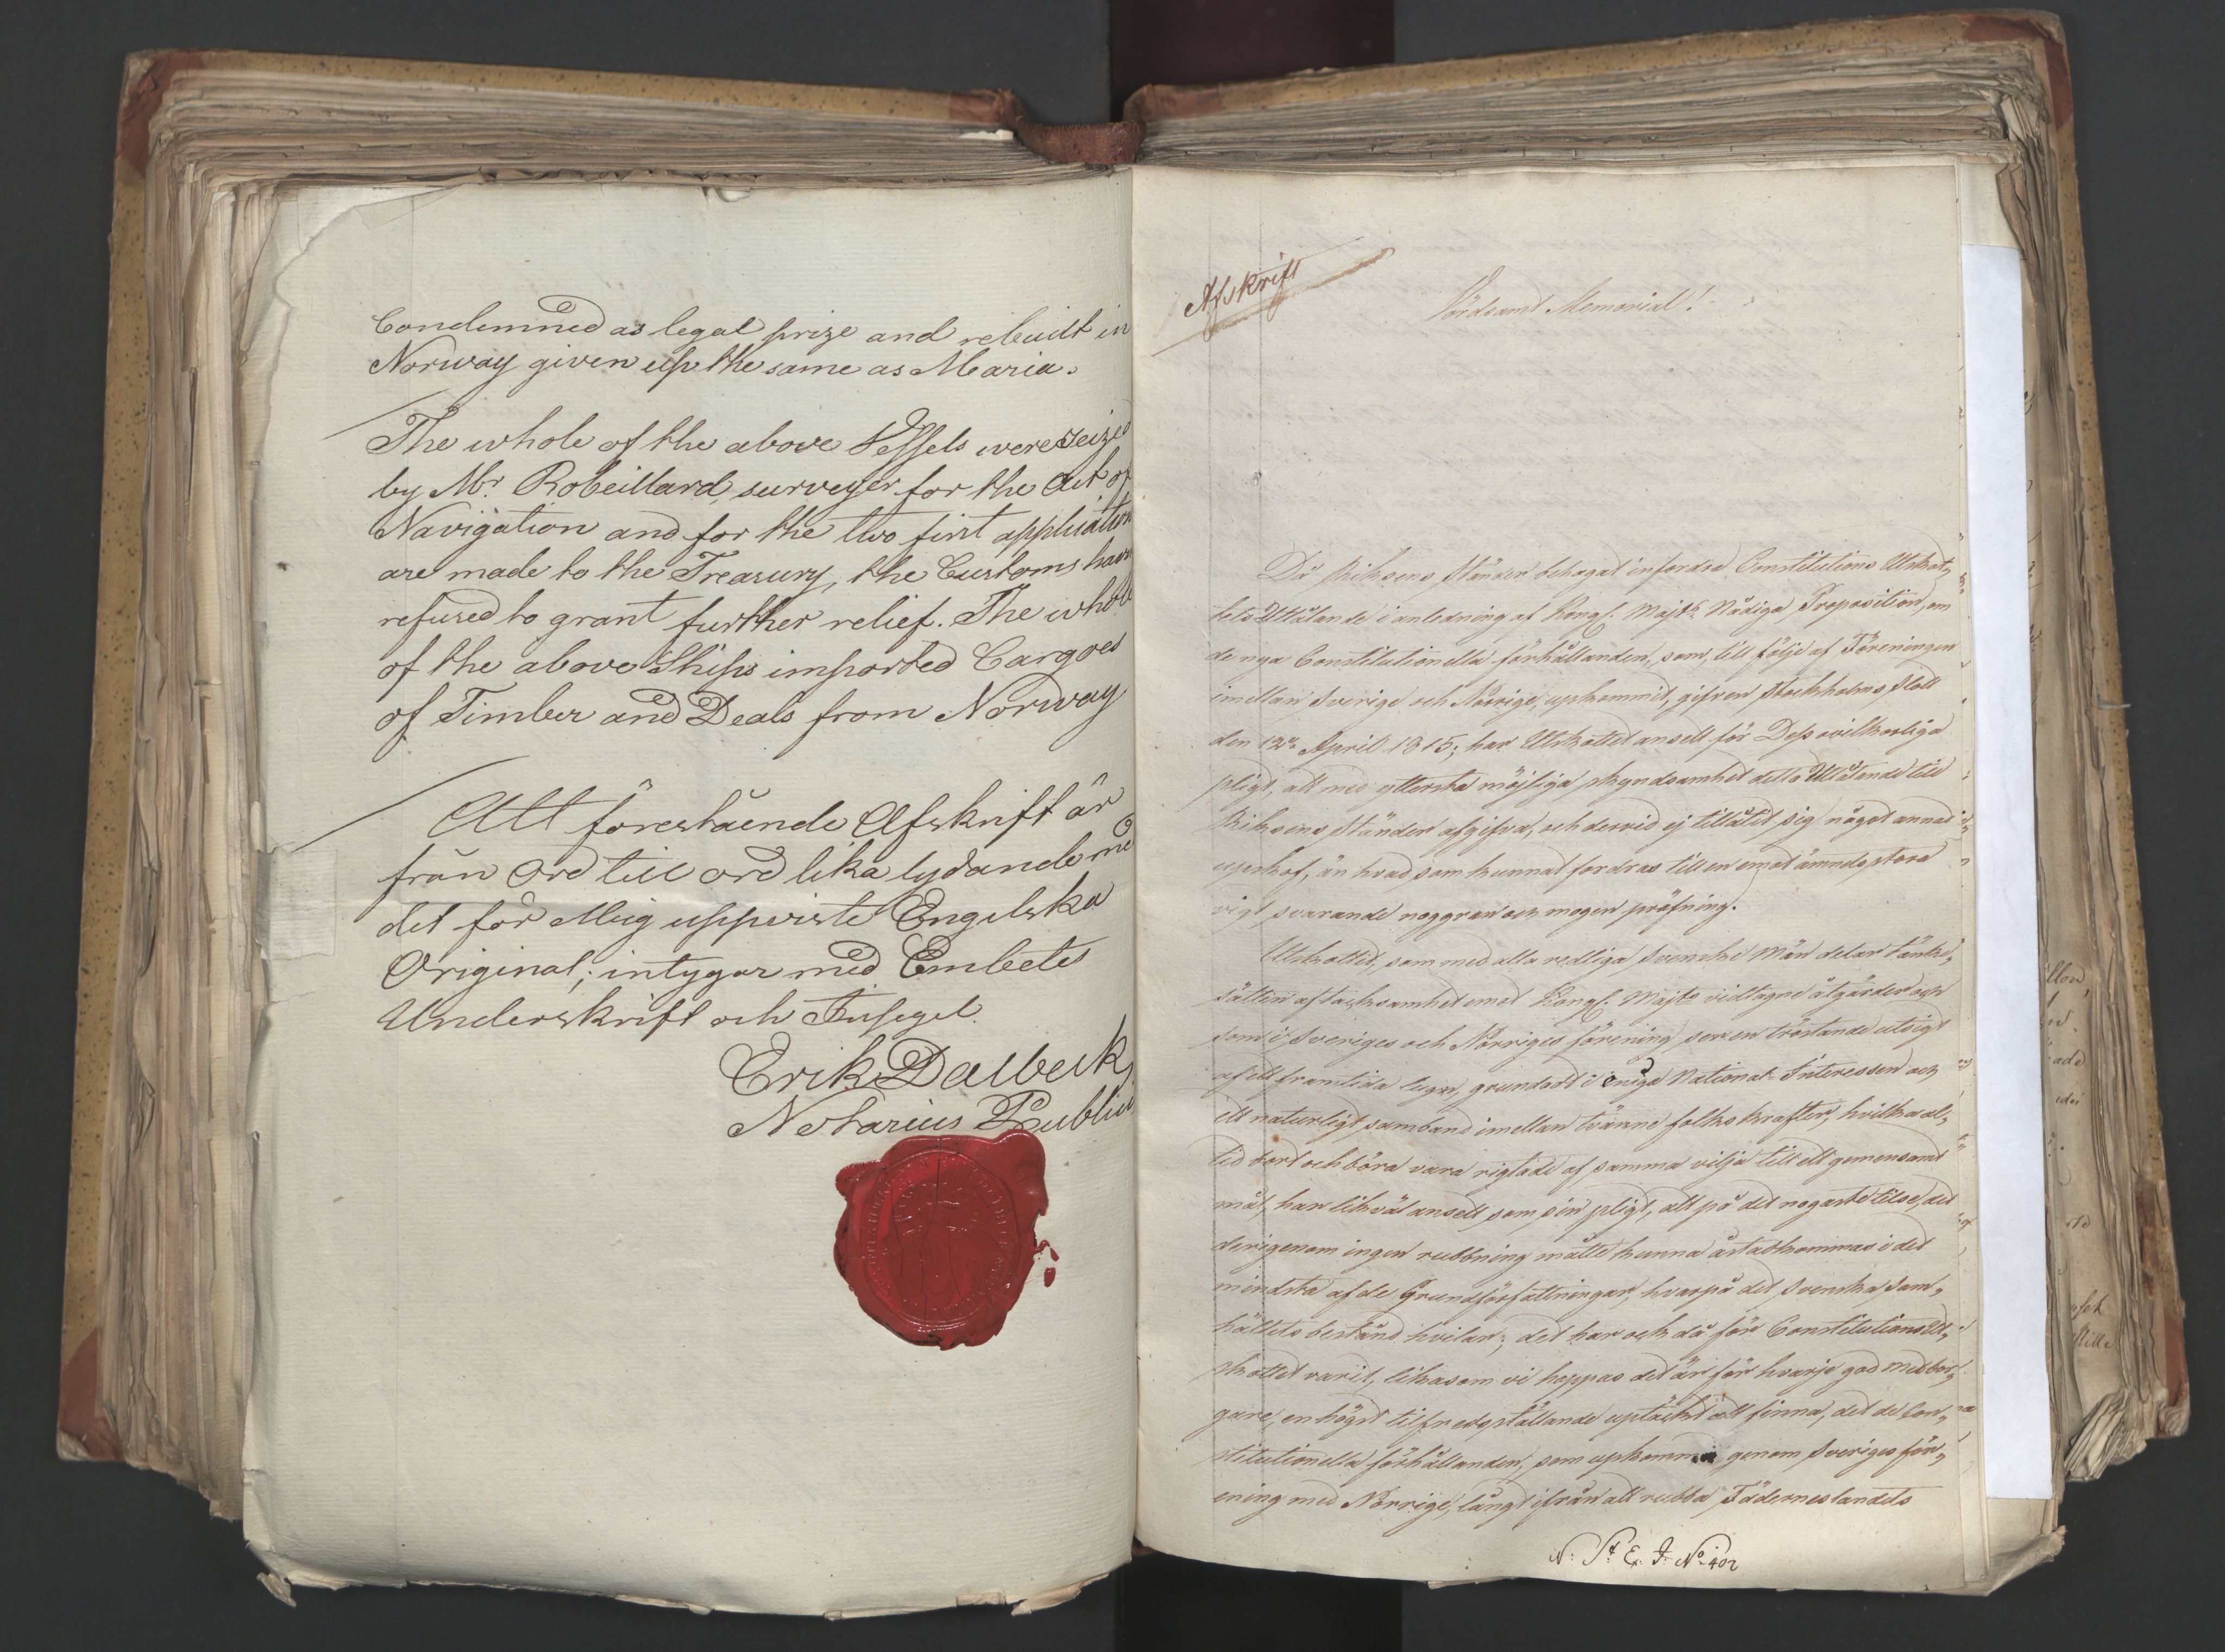 Condemned as legal prize and rebuilt in
Norway given up the same as Maria.
The whole of the above Vessels were seized
by Mr. Robeillard, surveyer for the Act of
Navigation and for the two first application
are made to the Treasury, the Customs have
refused to grant further relief. The whole
of the above Ships imported Cargoes
of Timber and Deals from Norway
Att förestående Afskrift är
från Ord till ord lika lydande med
det för Mig uppviste Engelska
Original; intygar med Embetes
Underskrift och Insegel.
Erik Dalbeck
Notarius Publicus
Afskrift
Vördsamt Memorial!
Då Riksens Ständer behagat infordra Constitutions Utskot,
tets Utlåtande i anledning af Kongl. Majts Nådiga Proposition, om
de nya Constitutionella förhållanden, som, till följe af Föreningen
imellan Sverige och Norrige, upkommit, gifven Stockholms Slott
den 12te April 1815; har Utskottet ansett för Dess ovilkorliga
pligt, att med yttersta möjliga skyndsamhet detta Utlåtande till
Riksens Ständer afgifva, och dervid ej tillåtit sig något annat
upskof, än hvad som kunnat fordras till en emot ämnets stora
vigt svarande noggran och mogen pröfning.
Utskottet, som med alla redliga Svenske Män delar tänke,
sätten af tacksamhet emot Kongl. Majts vidtagne åtgärder och
som i Sveriges och Norriges förening ser en tröstande utsigt
af ett framtida lugn, grundadt i eniga National-Interessen och
ett naturligt samband imellan tvänne folks krafter, hvilka al,
tid bort och böra vara rigtade af samma vilja till ett gemensamt
mål, har likväl ansett som sin pligt, att på det nogaste tilse, det
derigenom ingen rubbning måtte kunna åstadkommas i det
mindsta af de Grundförfattningar, hvarpå det Svenska Sam,
hällets bestånd hvilar; det har och då för Constitutions Ut,
skottet varit, likasom vi hoppas det är för hvarje god Medbor,
gare, en högst tilfredsställande uptäckt att finna, det de Con,
stitutionella förhållanden, som upkommit genom Sveriges för,
ening med Norrige, långt ifrån att rubba Fäderneslandets
N: St. E. J. No. 402